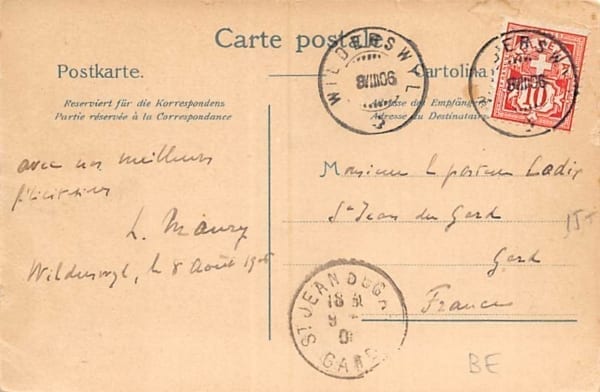 Carte postale.
Postkarte.
Cartolina
Reserviert für die Korrespondenz
Partie réservée à la Correspondance
Adresse des Empfängers
Adresse du Destinataire
WILDERSWYL
8.VIII.06
WILDERSWYL
8.VIII.06
10
avec nos meilleurs
L. Maury
Wilderswyl, le 8 Août
Monsieur le pasteur Ladix
St Jean du Gard
Gard
France
ST JEAN DU GARD
18
9
GARD
15-
BE